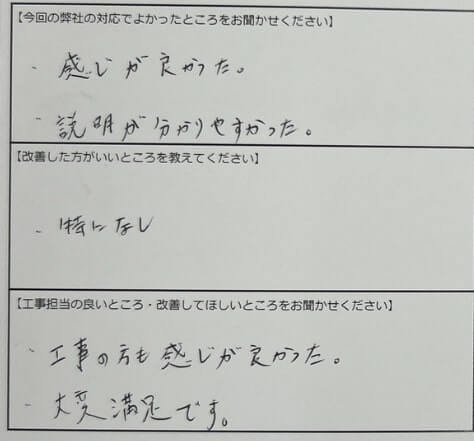 【今回の弊社の対応でよかったところをお聞かせください】
- 感じが良かった。
- 説明が分かりやすかった。
【改善した方がいいところを教えてください】
- 特になし
【工事担当の良いところ・改善してほしいところをお聞かせください】
- 工事の方も感じが良かった。
- 大変満足です。